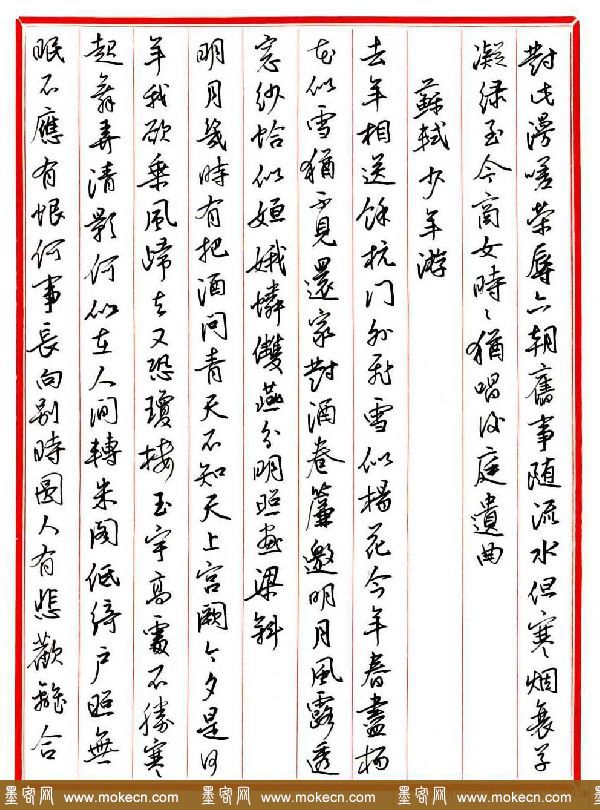 對此漫嗟榮辱六朝舊事隨流水但寒烟衰草
凝绿至今商女時〻猶唱後庭遺曲
蘇軾少年游
去年相送餘杭门外飛雪似楊花今年春盡楊
花似雪猶不見還家對酒卷簾邀明月風露透
窓纱恰似姮娥憐雙燕分明照画梁斜
明月幾時有把酒問青天不知天上宫闕今夕是何
年我欲乗風歸去又恐瓊楼玉宇高處不勝寒
起舞弄清影何似在人间轉朱阁低绮户照無
眠不應有恨何事長向别時圆人有悲歡離合
墨客网 www.mokecn.com 墨客网 www.mokecn.com 墨客网 www.mokecn.com